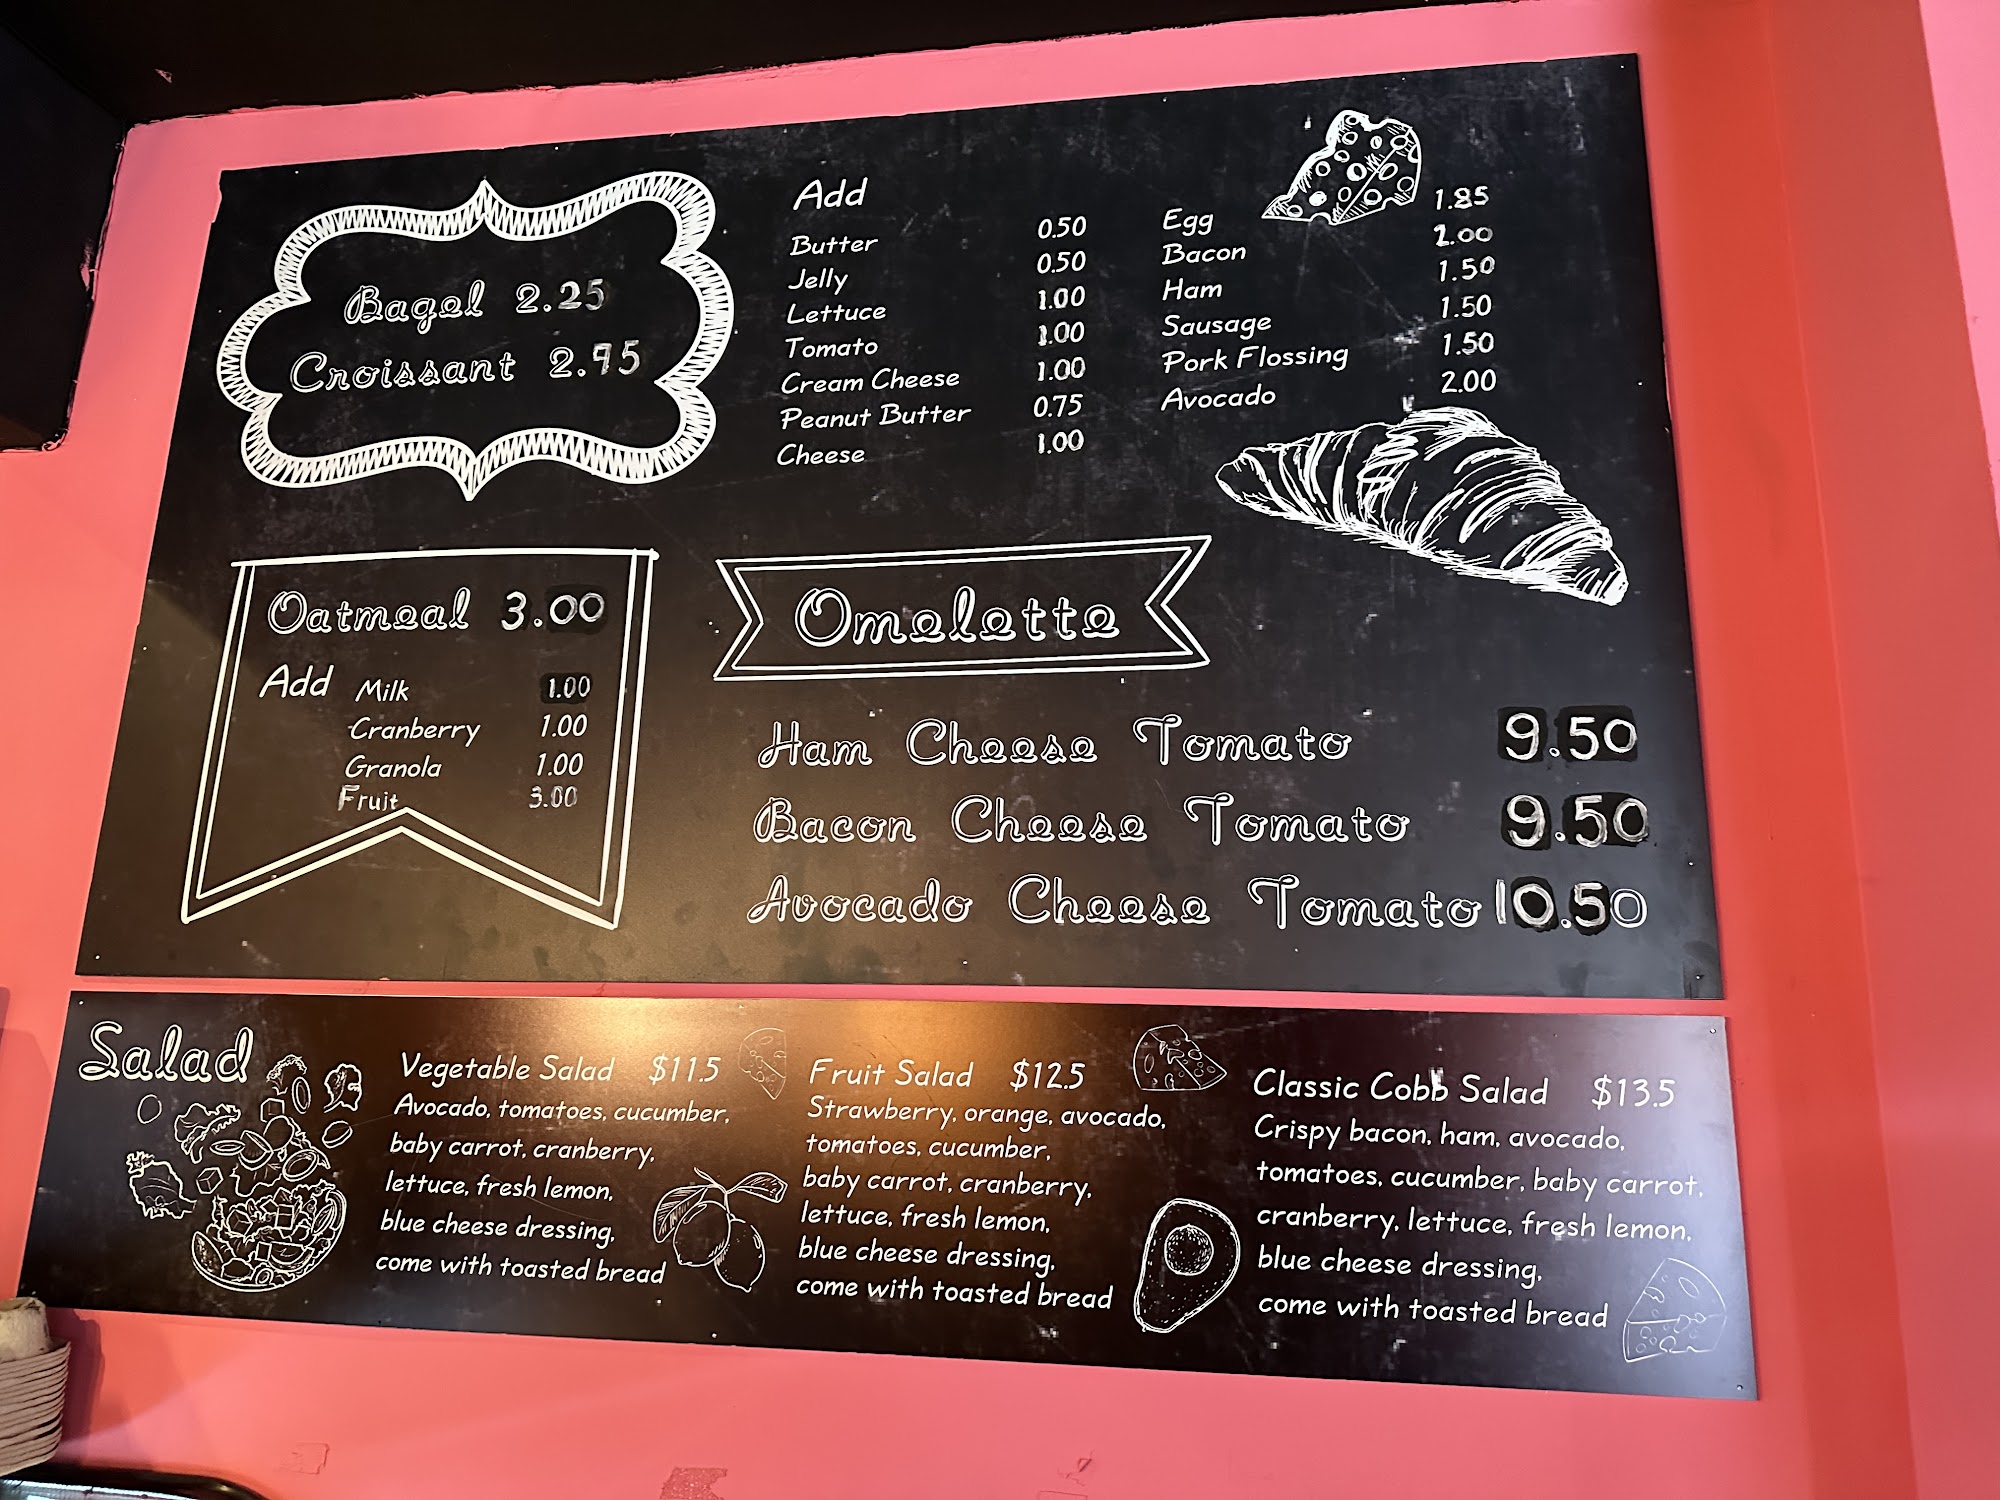 Bagel 2.25
Croissant 2.95
Add
Butter 0.50
Jelly 0.50
Lettuce 1.00
Tomato 1.00
Cream Cheese 1.00
Peanut Butter 0.75
Cheese 1.00
Egg 1.85
Bacon 2.00
Ham 1.50
Sausage 1.50
Pork Flossing 1.50
Avocado 2.00
Oatmeal 3.00
Add Milk 1.00
Cranberry 1.00
Granola 1.00
Fruit 3.00
Omelette
Ham Cheese Tomato 9.50
Bacon Cheese Tomato 9.50
Avocado Cheese Tomato 10.50
Salad
Vegetable Salad $11.5
Avocado, tomatoes, cucumber,
baby carrot, cranberry,
lettuce, fresh lemon,
blue cheese dressing,
come with toasted bread
Fruit Salad $12.5
Strawberry, orange, avocado,
tomatoes, cucumber,
baby carrot, cranberry,
lettuce, fresh lemon,
blue cheese dressing,
come with toasted bread
Classic Cobb Salad $13.5
Crispy bacon, ham, avocado,
tomatoes, cucumber, baby carrot,
cranberry, lettuce, fresh lemon,
blue cheese dressing,
come with toasted bread